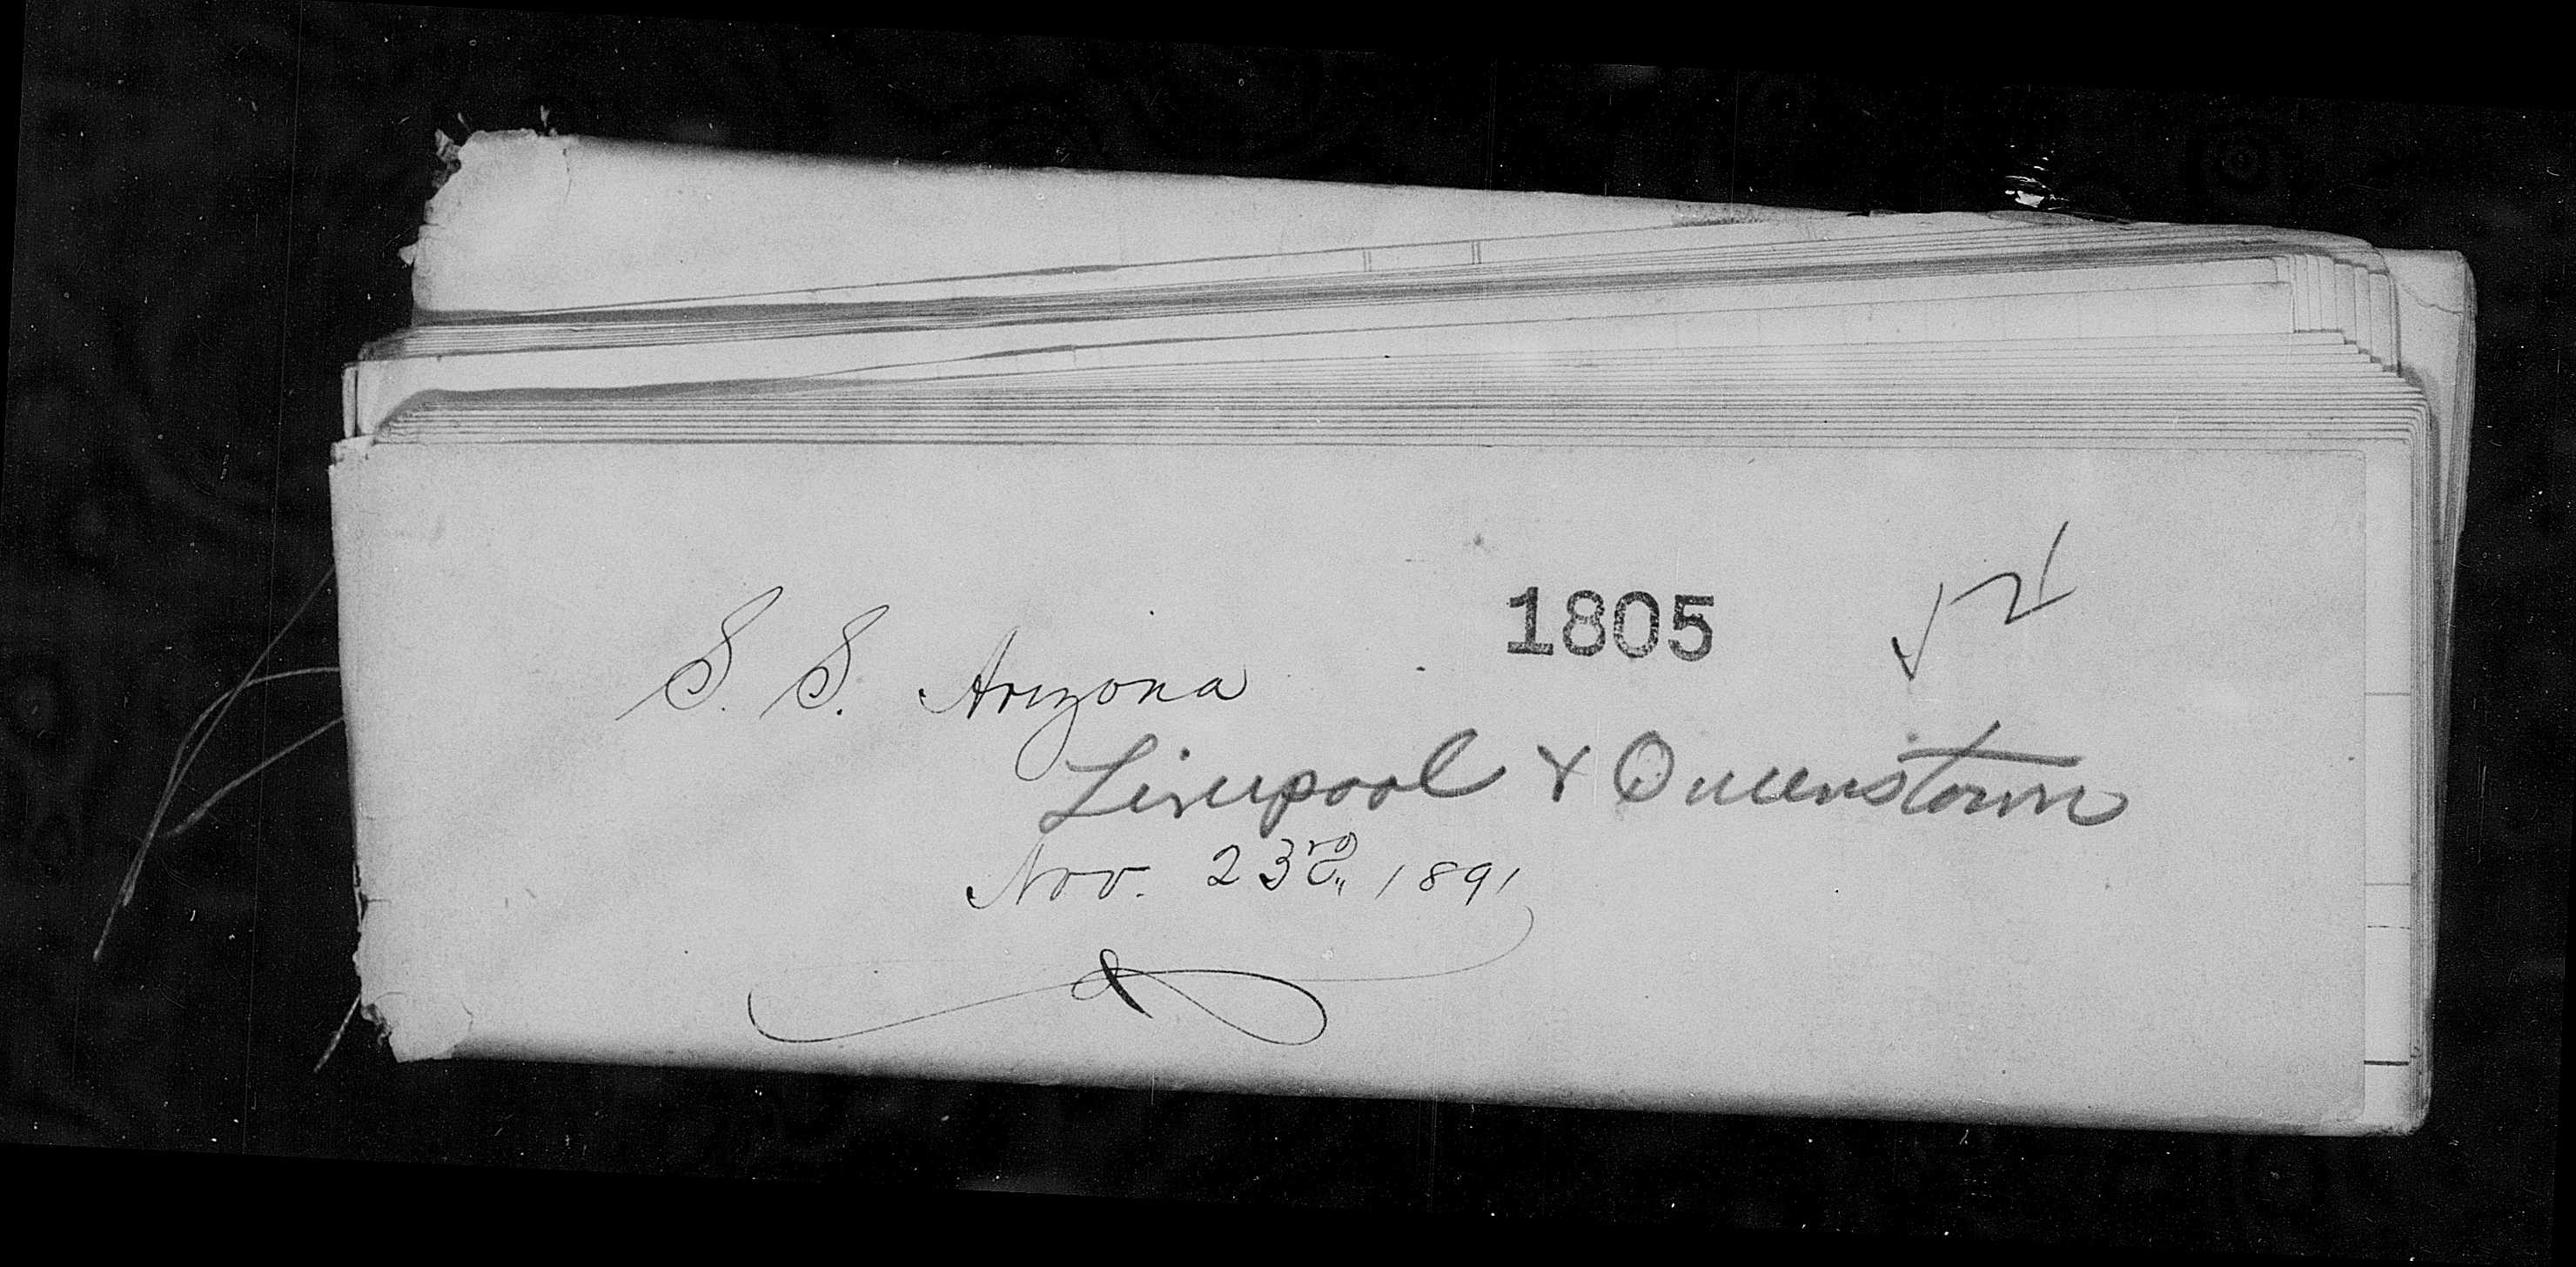 1805
S. S. Arizona
Liverpool & Queenstown
Nov. 23rd, 1891